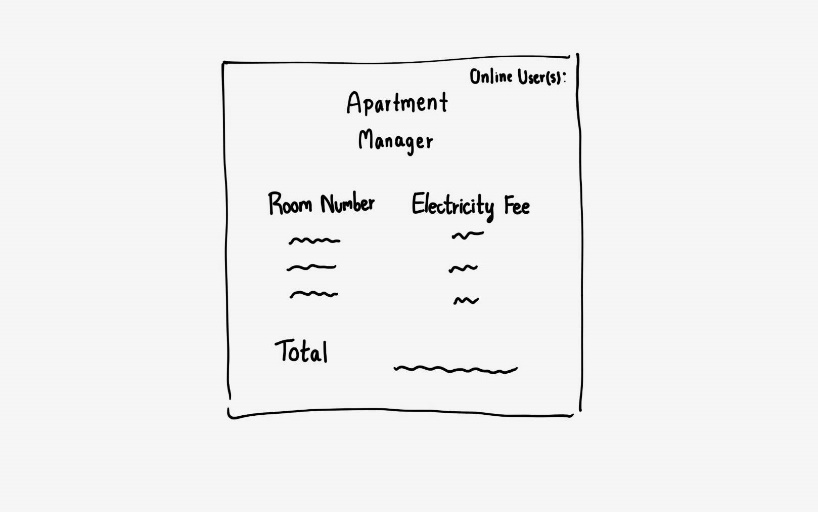 Online User(s):
Apartment
Manager
Room Number Electricity Fee
Total